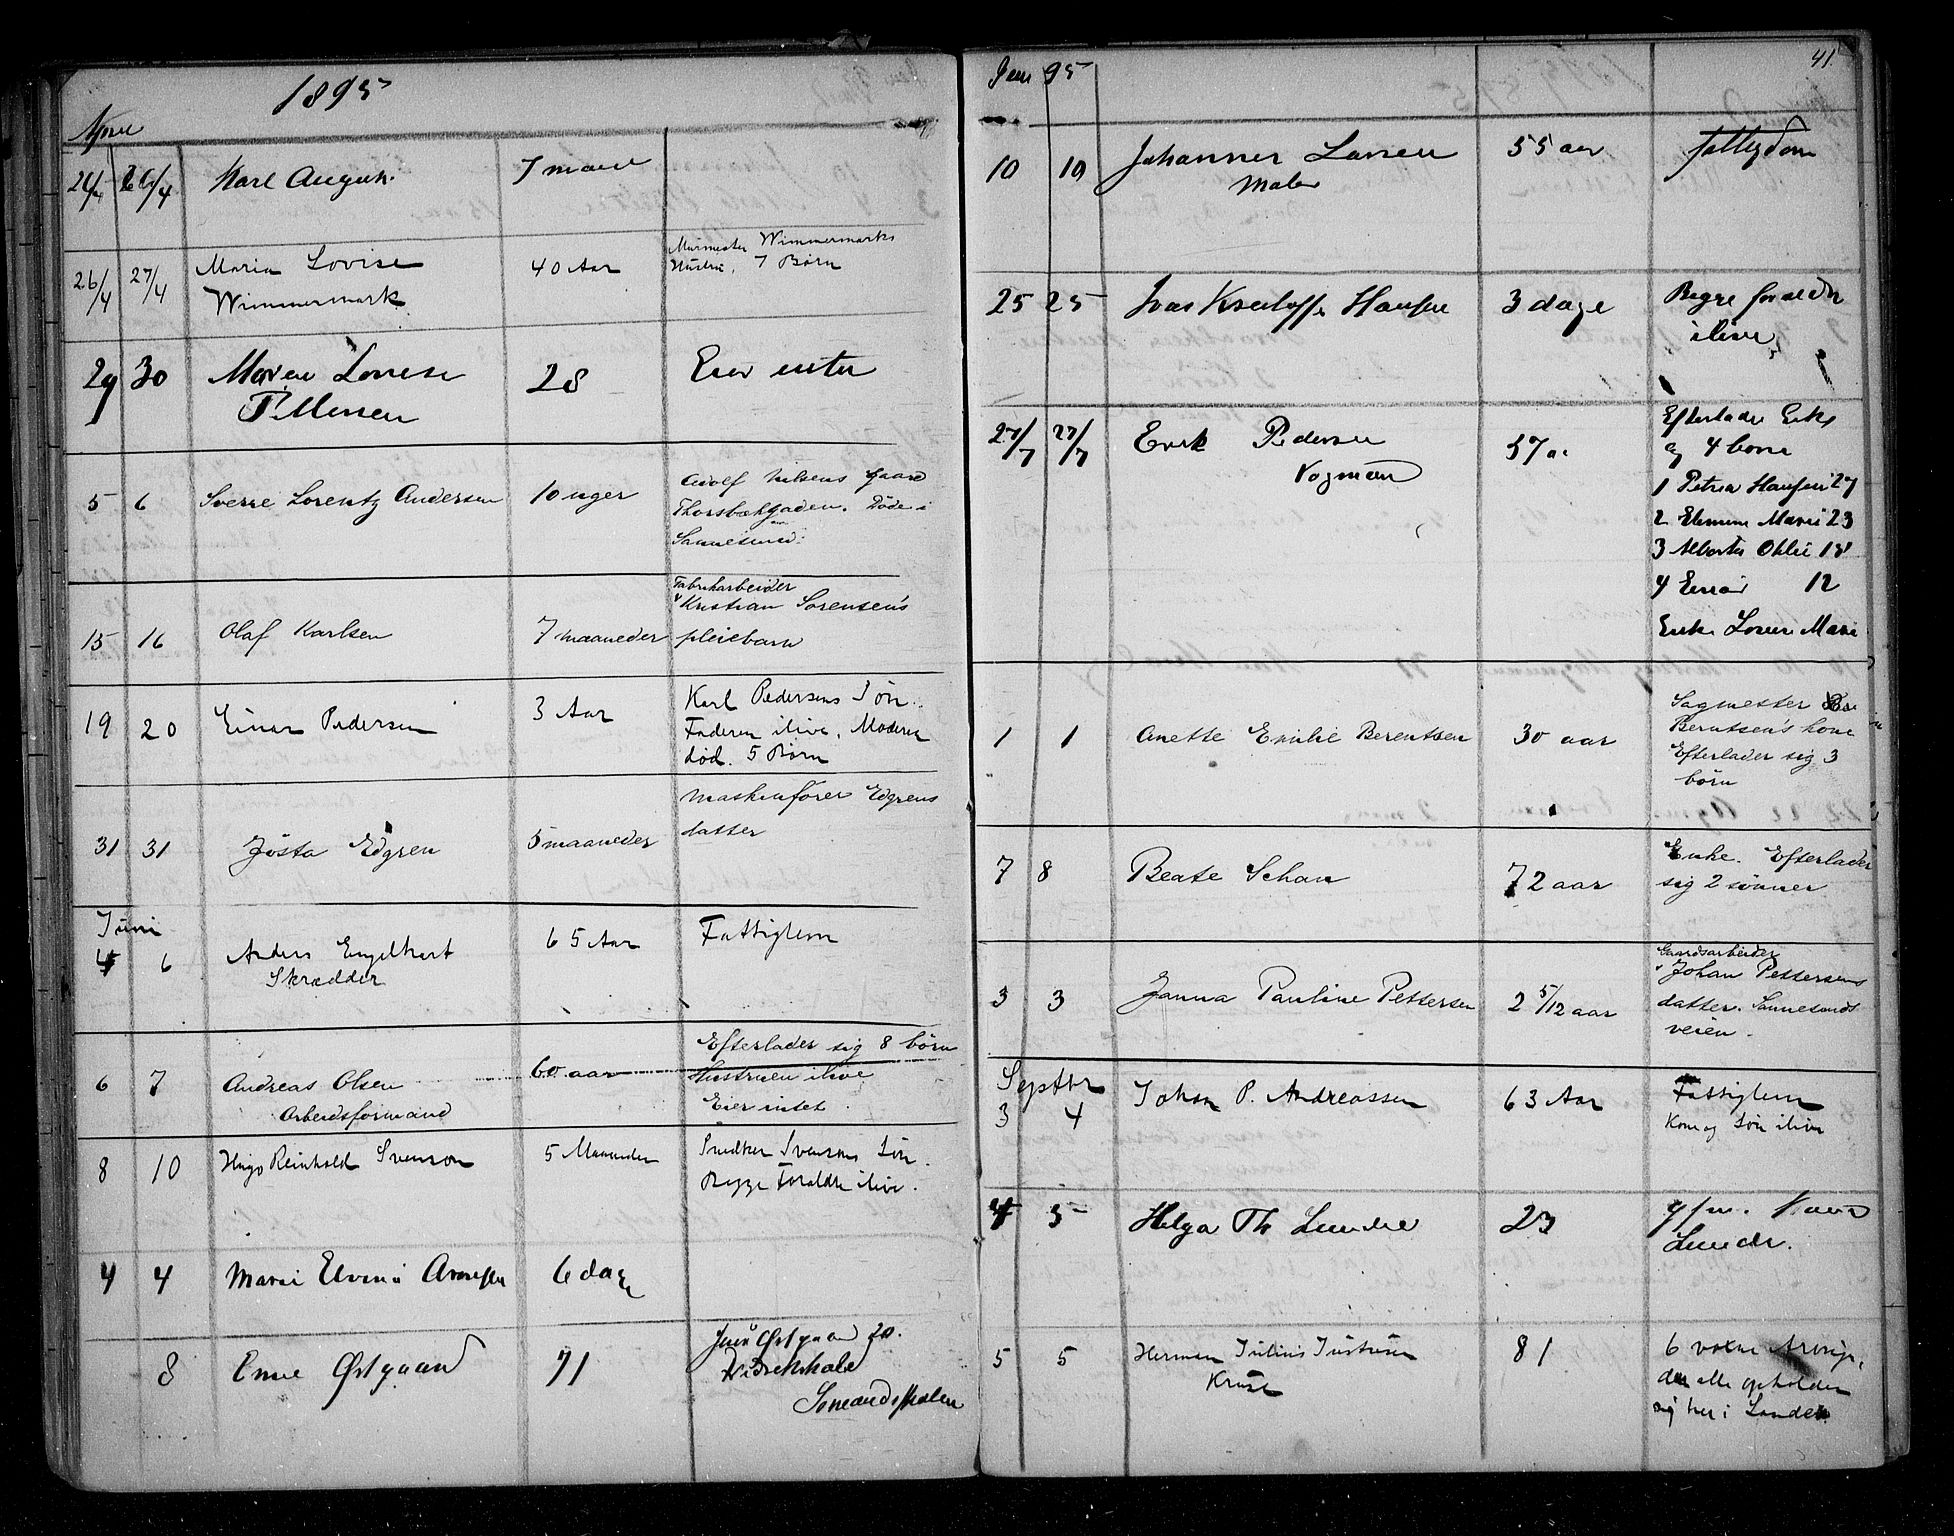 1895
April
26/4 26/4 Karl August 7 maan
26/4 27/4 Maria Lovise 40 Aar Murmester Wimmermarks
Wimmermark Hustru, 7 Børn
29 30 Maren Lovise 28 Eier intet
5 6 Sverre Lorentz Andersen 10 uger Adolf Nilsens Gaard
Thorsbækgaden. Døde i
Sannesund.
15 16 Olaf Karlsen 7 maaneder Fabrikarbeider
Kristian Sørensen's
pleiebarn
19 20 Einar Pedersen 3 Aar Karl Pedersens Søn.
Faderen ilive, Moderen
død. 5 Børn
31 31 Jøsta Edgren 5 maaneder Maskinfører Edgrens
datter
Juni
4 6 Anders Engelhart 65 Aar Fattiglem
Skrædder
6 7 Andreas Olsen 60 aar Efterlader sig 8 børn
Arbeidsformand Hustruen ilive
Eier intet.
8 10 Hugo Reinhold Svenson 5 Maaneder Snedker Svensons Søn.
Begge Forældre ilive.
4 4 Marie Elvine 6 dage
8 Østgaard 71 Østgaard
Sømandsskolen
41
95
10 19 Johannes Larsen 55 aar fattigdom
Maler
25 25 Ivar Kristoffer Hansen 3 dage Begge forældre
ilive
27/7 27/7 Erik Pedersen 57 a Efterlader Enke
Vogmand og 4 born
1 Petrea Hansen 27
2 Marie 23
3 18
4 Einar 12
Enke Marie
1 1 Anette Emilie Berentsen 30 aar Sagmester
Berntsen's kone
Efterlader sig 3
børn
7 8 Beate Schau 72 aar Enke. Efterlader
sig 2 sønner
3 3 Janna Pauline Pettersen 2 5/12 aar Gaardsarbeider
Johan Pettersens
datter. Sannesunds
veien.
Septbr
3 4 Johan P. Andreassen 63 Aar Fattiglem
Kone og Søn ilive
4 5 Helga Th Lunde 23 g/m.
Lunde.
5 5 Herman Julius Justusen 81 6 voksne Arvinger,
Kruse der alle opholder
sig her i Landet